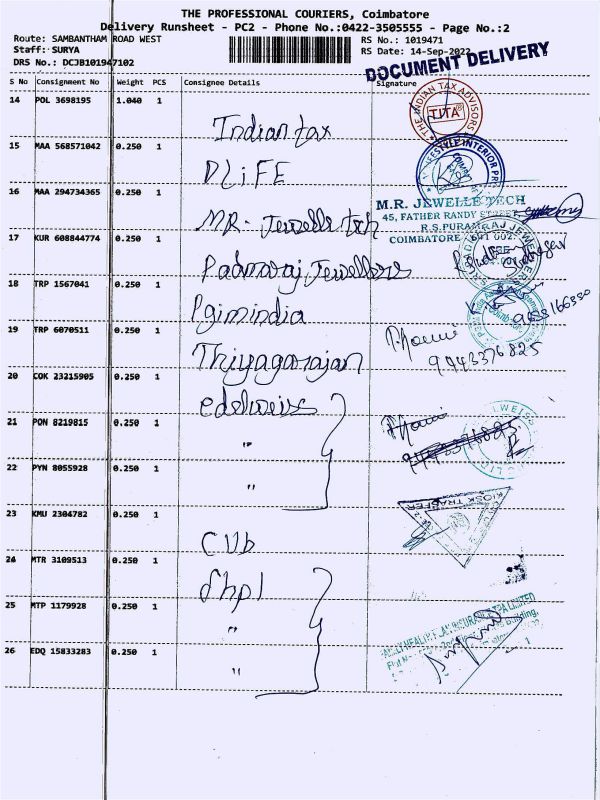 THE PROFESSIONAL COURIERS, Coimbatore
Delivery Runsheet - PC2 - Phone No.:0422-3505555 - Page No.:2
Route: SAMBANTHAM ROAD WEST
RS No.: 1019471
Staff: SURYA
RS Date: 14-Sep-2022
DRS No.: DCJB101947102
DOCUMENT DELIVERY
S No Consignment No Weight PCS Consignee Details Signature
14 POL 3698195 1.040 1 Indian tax
THE INDIAN TAX ADVISORS
TITA
15 MAA 568571042 0.250 1 DLiFE
16 MAA 294734365 0.250 1 MR. Jewelle tech
M.R. JEWELLE TECH
45, FATHER RANDY STREET,
R.S. PURAM
COIMBATORE - 641 002.
17 KUR 608844774 0.250 1 Padmaraj Jewellers
18 TRP 1567041 0.250 1 Pgimindia
19 TRP 6070511 0.250 1 Thiyagarajan
9443376825
20 COK 23215905 0.250 1 edelweiss
21 PON 8219815 0.250 1 "
22 PYN 8055928 0.250 1 "
KIOSK TRANSFER
23 KMU 2304782 0.250 1 CUb
24 MTR 3109513 0.250 1 dhpl
25 MTP 1179928 0.250 1 "
26 EDQ 15833283 0.250 1 "